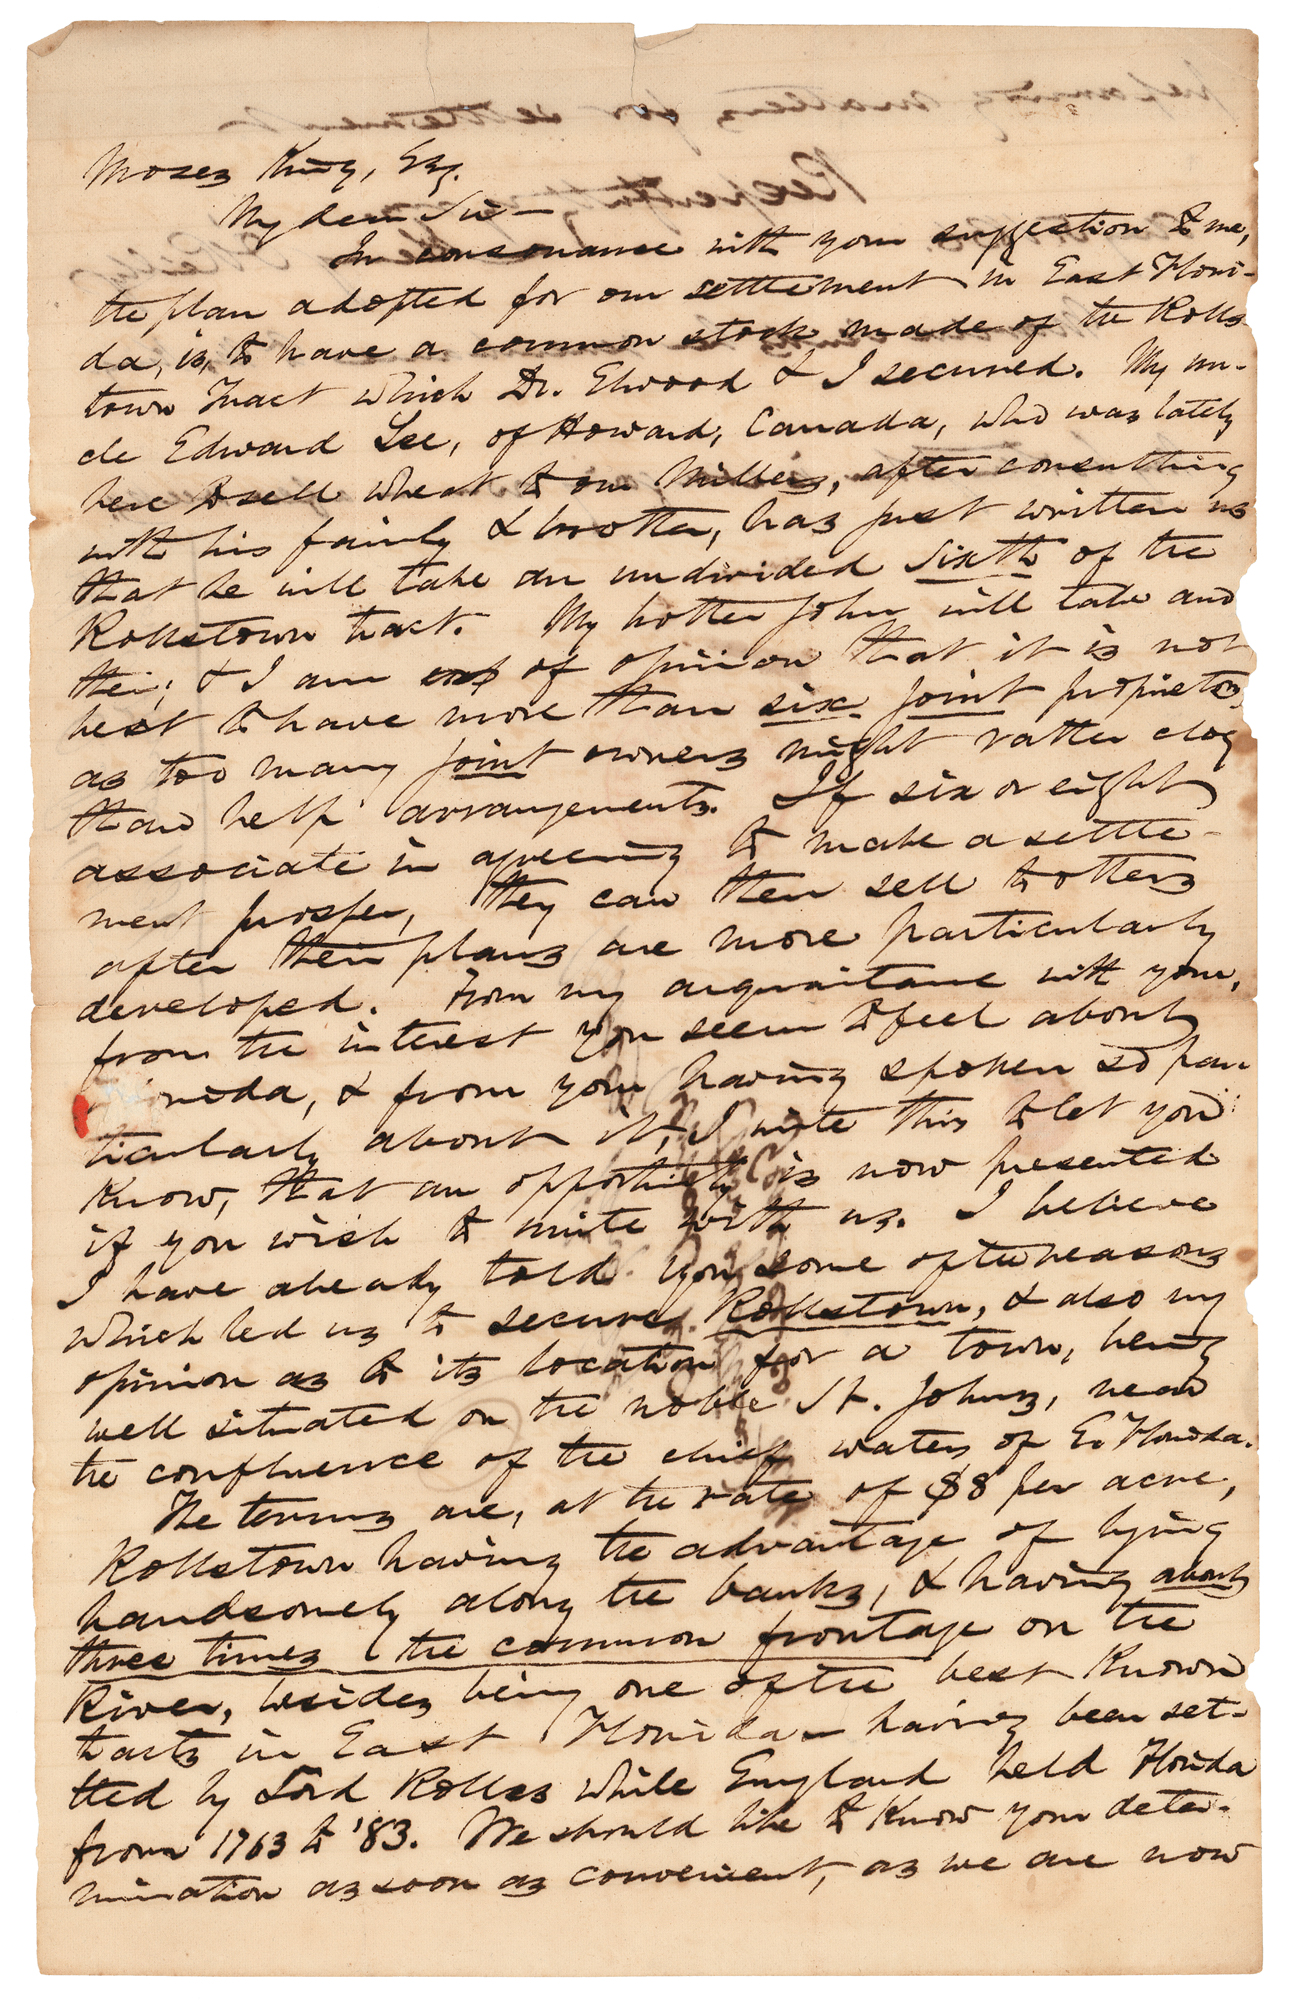 Moses King, Esq.
My dear Sir —
In consonance with your suggestion to me,
the plan adopted for our settlement in East Flori-
da, is, to have a common stock made of the Rolls-
town Tract which Dr. Elwood & I secured. My un-
cle Edward Lee, of Howard, Canada, who was lately
here to sell wheat to our Millers, after consulting
with his family & brother, has just written us
that he will take an undivided sixth of the
Rollstown tract. My brother John will take ano
ther; & I am of opinion that it is not
best to have more than six joint proprietors,
as too many joint owners might rather clog
than help arrangements. If six or eight
associate in agreeing to make a settle-
ment prosper, they can then sell to others
after their plans are more particularly
developed. From my acquaintance with you,
from the interest you seem to feel about
Florida, & from your having spoken so par
ticularly about it, I write this to let you
know, that an opportunity is now presented
if you wish to unite with us. I believe
I have already told you some of the reasons
which led us to secure Rollstown, & also my
opinion as to its location for a town, being
well situated on the noble St. Johns, near
the confluence of the chief waters of E. Florida.
The terms are, at the rate of $8 per acre,
Rollstown having the advantage of lying
handsomely along the banks, & having about
three times the common frontage on the
River, besides being one of the best known
tracts in East Florida — having been set-
tled by Lord Rolles while England held Florida
from 1763 to '83. We should like to know your deter-
mination as soon as convenient, as we are now